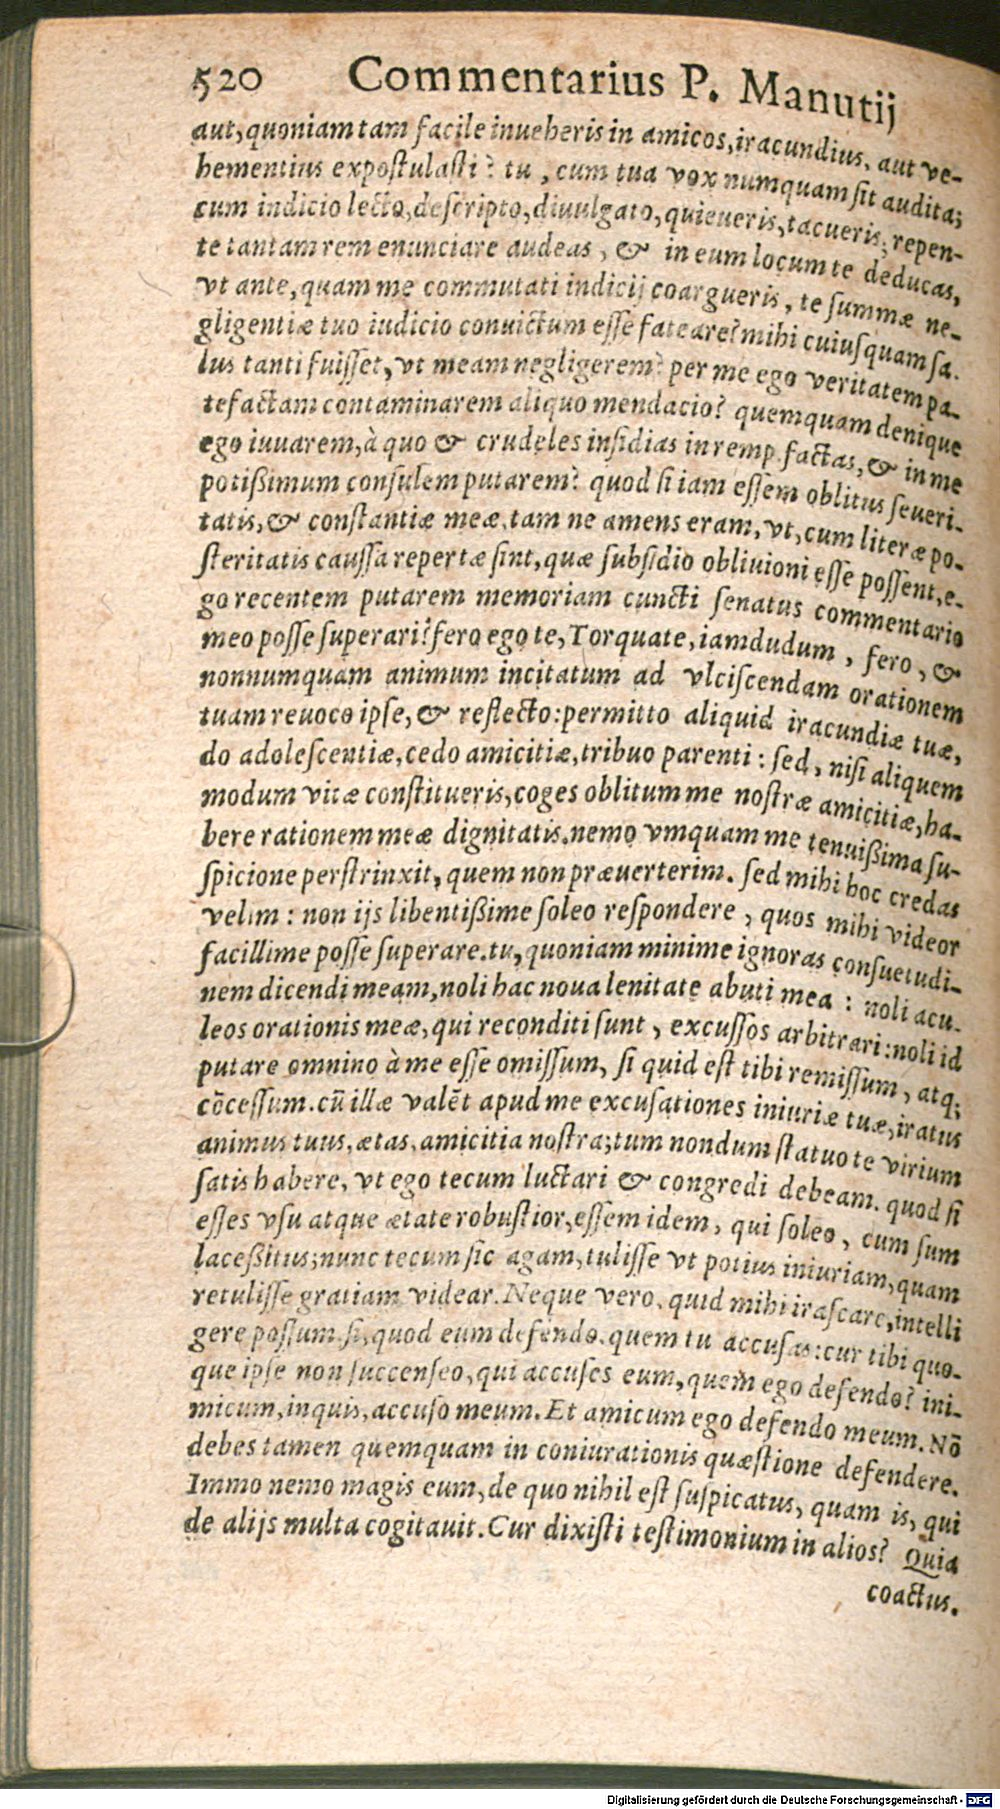 520 Commentarius P. Manutij
aut, quoniam tam facile inueheris in amicos, iracundius, aut ve-
hementius expostulasti? tu, cum tua vox numquam sit audita;
cum indicio lecto, descripto, diuulgato, quieueris, tacueris, repen-
te tantam rem enunciare audeas, & in eum locum te deducas,
vt ante, quam me commutati indicij coargueris, te summæ ne-
gligentiæ tuo iudicio conuictum esse fateare? mihi cuiusquam sa-
lus tanti fuisset, vt meam negligerem? per me ego veritatem pa-
tefactam contaminarem aliquo mendacio? quemquam denique
ego iuuarem, à quo & crudeles insidias in remp. factas, & in me
potißimum consulem putarem? quod si iam essem oblitus seueri-
tatis, & constantiæ meæ, tam ne amens eram, vt, cum literæ po-
steritatis caussa repertæ sint, quæ subsidio obliuioni esse possent, e-
go recentem putarem memoriam cuncti senatus commentario
meo posse superari? fero ego te, Torquate, iamdudum, fero, &
nonnumquam animum incitatum ad vlciscendam orationem
tuam reuoco ipse, & reflecto: permitto aliquid iracundiæ tuæ,
do adolescentiæ, cedo amicitiæ, tribuo parenti: sed, nisi aliquem
modum vitæ constitueris, coges oblitum me nostræ amicitiæ, ha-
bere rationem meæ dignitatis. nemo vmquam me tenuißima su-
spicione perstrinxit, quem non præuerterim. sed mihi hoc credas
velim: non ijs libentißime soleo respondere, quos mihi videor
facillime posse superare. tu, quoniam minime ignoras consuetudi-
nem dicendi meam, noli hac noua lenitate abuti mea: noli acu-
leos orationis meæ, qui reconditi sunt, excussos arbitrari: noli id
putare omnino à me esse omissum, si quid est tibi remissum, atq;
cōcessum. cū illæ valēt apud me excusationes iniuriæ tuæ, iratus
animus tuus, ætas, amicitia nostra; tum nondum statuo te virium
satis habere, vt ego tecum luctari & congredi debeam. quod si
esses vsu atque ætate robustior, essem idem, qui soleo, cum sum
laceßitus; nunc tecum sic agam, tulisse vt potius iniuriam, quam
retulisse gratiam videar. Neque vero, quid mihi irascare, intelli
gere possum. si, quod eum defendo, quem tu accusas: cur tibi quo-
que ipse non succenseo, qui accuses eum, quem ego defendo? ini-
micum, inquis, accuso meum. Et amicum ego defendo meum. Nō
debes tamen quemquam in coniurationis quæstione defendere.
Immo nemo magis eum, de quo nihil est suspicatus, quam is, qui
de alijs multa cogitauit. Cur dixisti testimonium in alios? Quia
coactus.
Digitalisierung gefördert durch die Deutsche Forschungsgemeinschaft - DFG